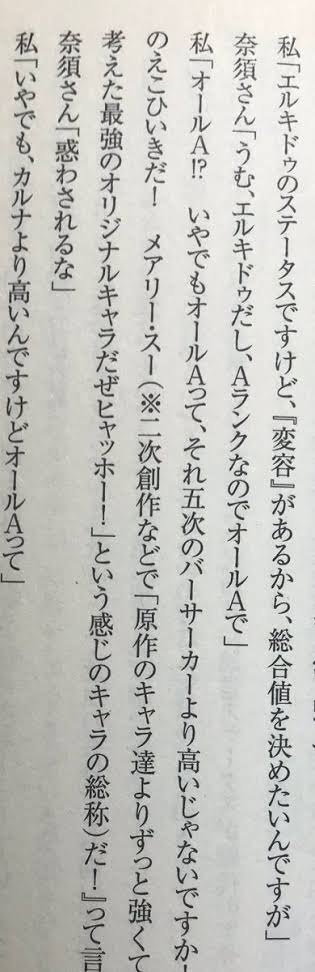 私「エルキドゥのステータスですけど、『変容』があるから、総合値を決めたいんですが」
奈須さん「うむ、エルキドゥだし、AランクなのでオールAで」
私「オールA!?　いやでもオールAって、それ五次のバーサーカーより高いじゃないですか！
のえこひいきだ！　メアリー・スー（※二次創作などで「原作のキャラ達よりずっと強くて
考えた最強のオリジナルキャラだぜヒャッホー！」という感じのキャラの総称）だ！』って言
奈須さん「惑わされるな」
私「いやでも、カルナより高いんですけどオールAって」